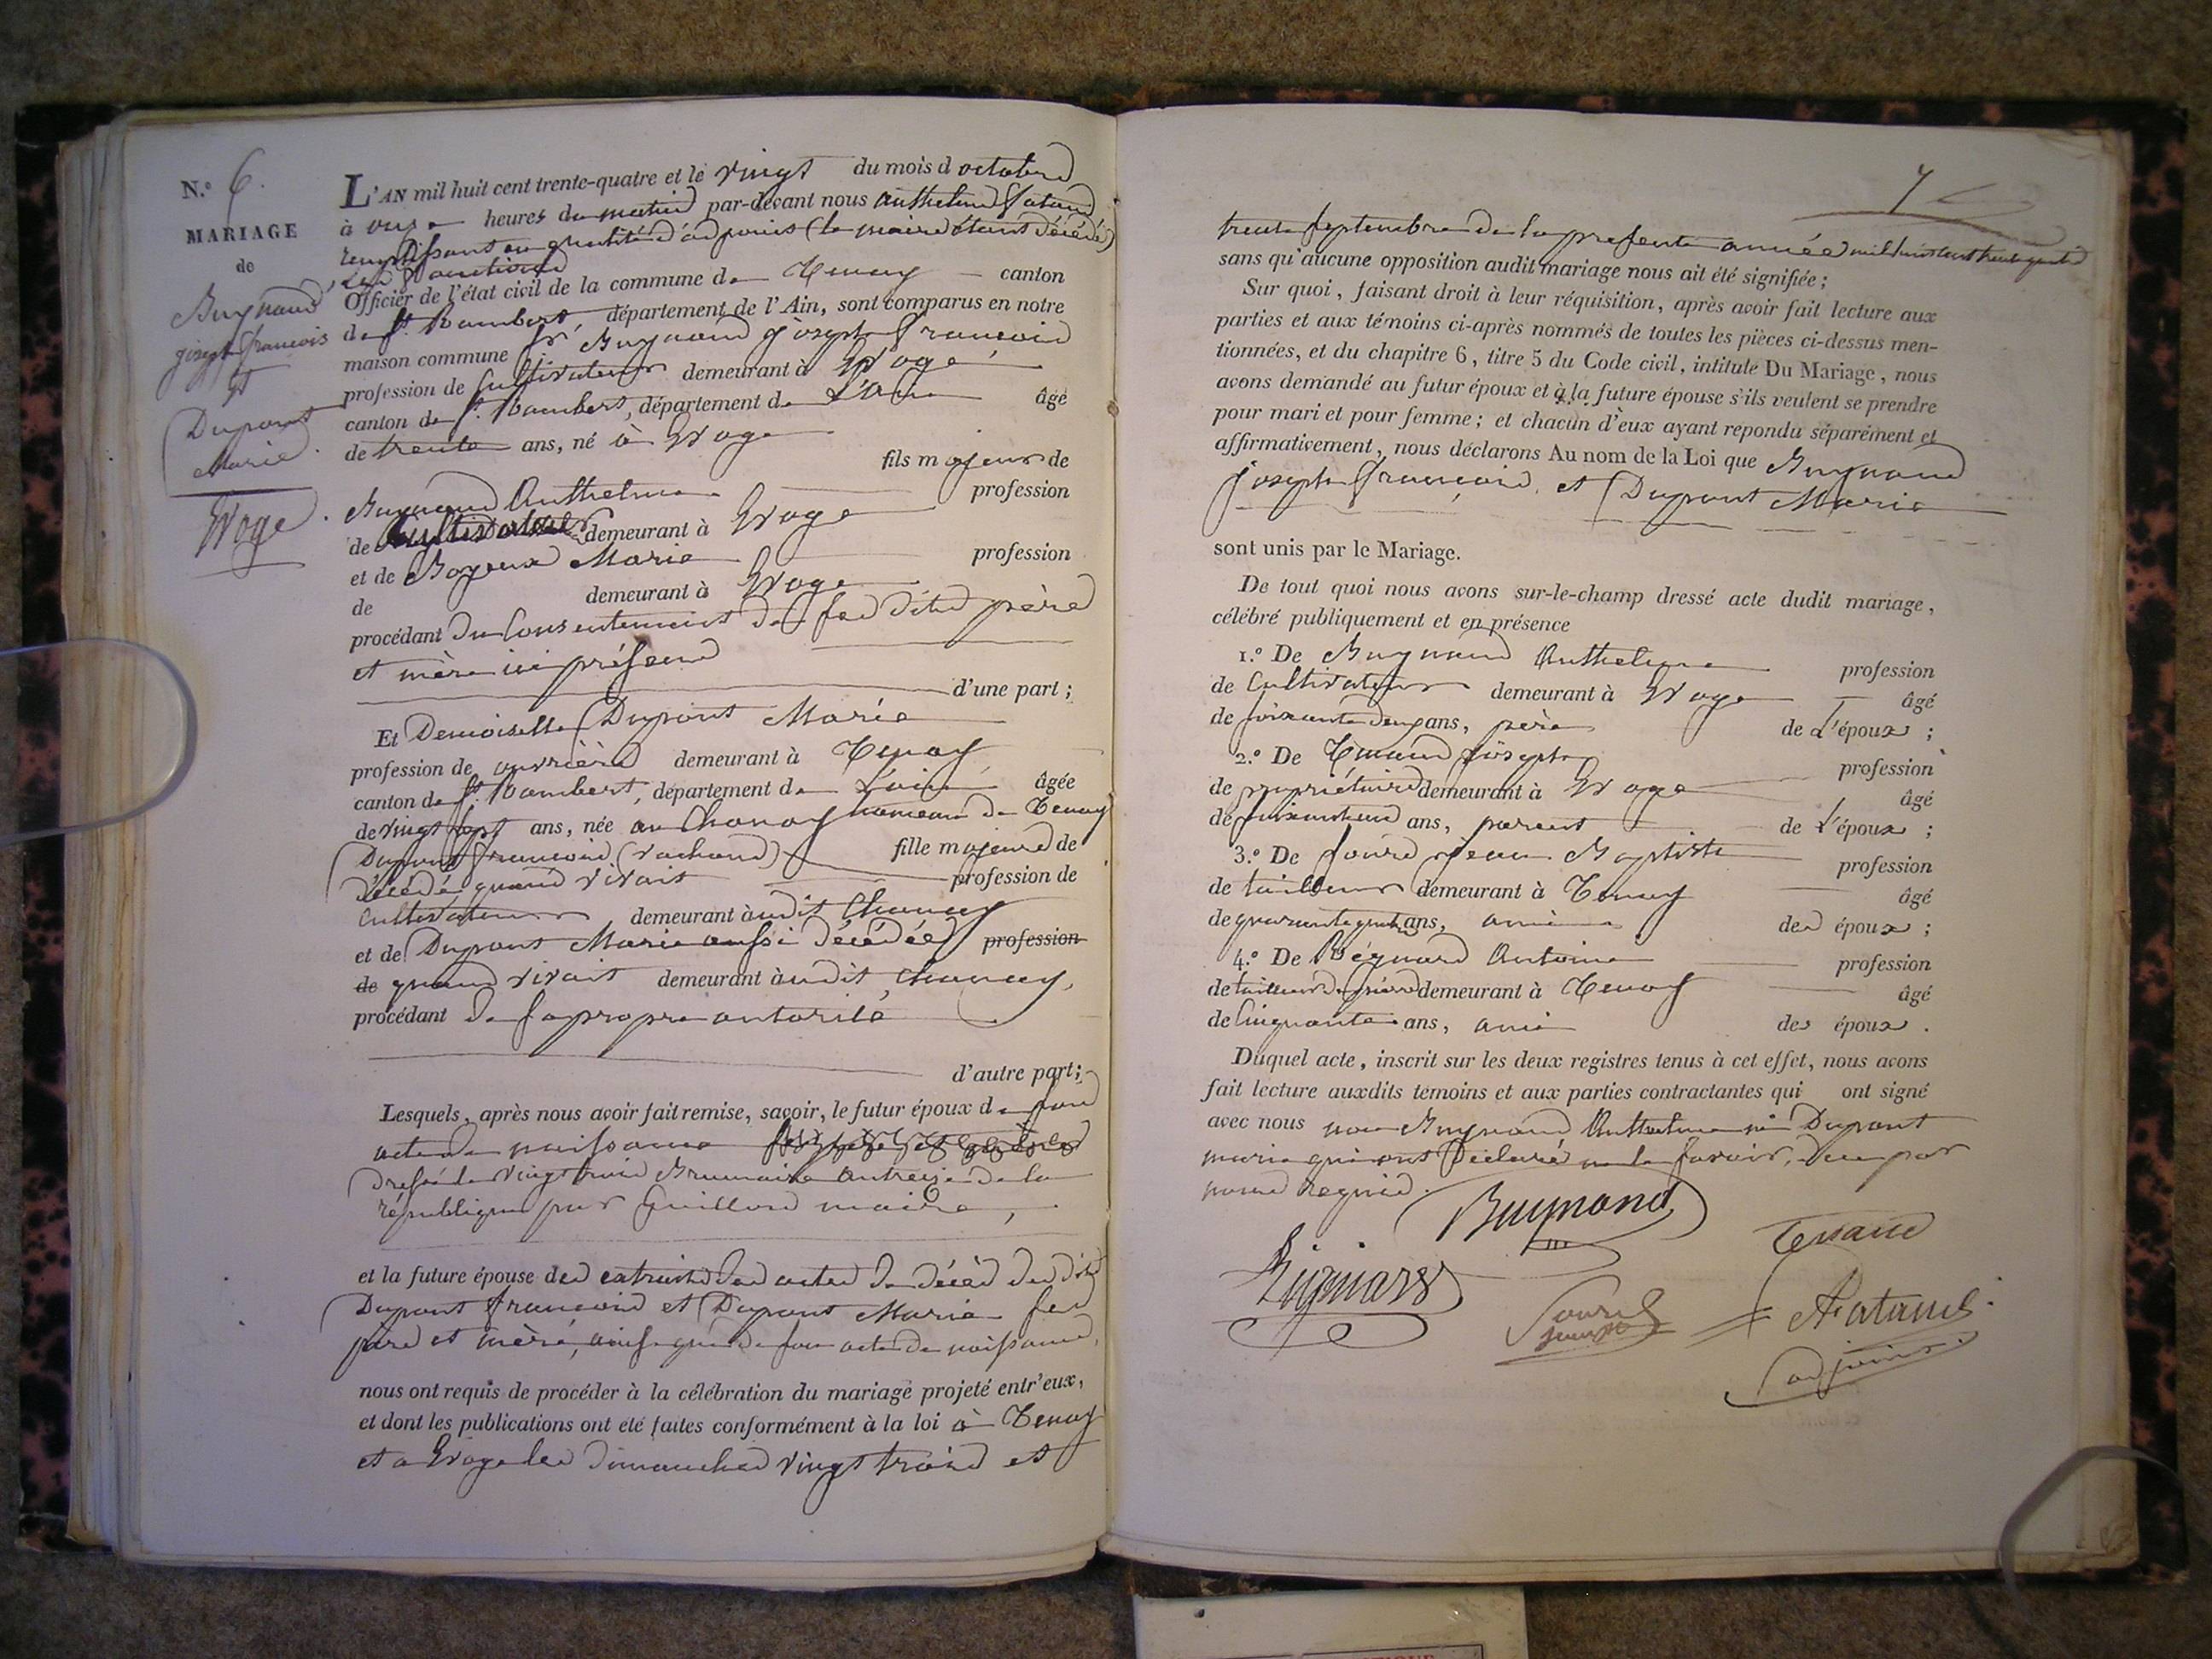 N.° 6.
MARIAGE
de
Buynand
joseph françois
Et
Dupont
Marie.
Evoge.
L'AN mil huit cent trente-quatre et le vingt du mois d octobre
à onze heures du matin par-devant nous Anthelme
remplissant en qualité d'adjoint (le maire étant décédé)
les fonctions
Officier de l'état civil de la commune de Tenay canton
de St. Rambert, département de l'Ain, sont comparus en notre
maison commune Sr. Buynand joseph françois
profession de Cultivateur demeurant à Evoge
canton de St. Rambert, département de L'Ain âgé
de trente ans, né à Evoge
fils majeur de
Buynand Anthelme profession
de Cultivateur demeurant à Evoge
et de Marie profession
de demeurant à Evoge
procédant du Consentement de ses dits père
et mère ici présens
d'une part;
Et Demoiselle Dupont Marie
profession de ouvrière demeurant à Tenay
canton de St. Rambert, département de L'ain âgée
de vingt sept ans, née au Chanay hameau de Tenay
Dupont françois fille majeure de
décédé quand vivait profession de
Cultivateur demeurant àudit Chanay
et de Dupont Marie aussi décédée profession
de quand vivait demeurant àudit Chanay,
procédant de sa propre autorité
d'autre part;
Lesquels, après nous avoir fait remise, savoir, le futur époux de son
acte de naissance
dressé le vingt trois Brumaire an treize de la
république par maire,
et la future épouse des extraits des actes de décès des dits
Dupont françois et Dupont Marie ses
père et mère, ainsi que de son acte de naissance,
nous ont requis de procéder à la célébration du mariage projeté entr'eux,
et dont les publications ont été faites conformément à la loi à Tenay
et a Evoge les dimanches vingt trois et
7
trente septembre de la presente année mil huit cent trente quatre
sans qu'aucune opposition audit mariage nous ait été signifiée;
Sur quoi, faisant droit à leur réquisition, après avoir fait lecture aux
parties et aux témoins ci-après nommés de toutes les pièces ci-dessus men-
tionnées, et du chapitre 6, titre 5 du Code civil, intitulé Du Mariage, nous
avons demandé au futur époux et à la future épouse s'ils veulent se prendre
pour mari et pour femme; et chacun d'eux ayant répondu séparément et
affirmativement, nous déclarons Au nom de la Loi que Buynand
joseph françois et Dupont Marie
sont unis par le Mariage.
De tout quoi nous avons sur-le-champ dressé acte dudit mariage,
célébré publiquement et en présence
1.° De Buynand Anthelme profession
de Cultivateur demeurant à Evoge âgé
de soixante deux ans, père de L'époux;
2.° De Tenand joseph profession
de propriétaire demeurant à Evoge âgé
de ans, parent de L'époux;
3.° De jean Baptiste profession
de tailleur demeurant à Tenay âgé
de quarante quatre ans, ami des époux;
4.° De Antoine profession
de tailleur de pierre demeurant à Tenay âgé
de Cinquante ans, ami des époux.
Duquel acte, inscrit sur les deux registres tenus à cet effet, nous avons
fait lecture auxdits témoins et aux parties contractantes qui ont signé
avec nous non Buynand Anthelme ni Dupont
marie qui ont déclaré ne le savoir, de ce par
nous requis.
Buynand
Tenand
adjoint